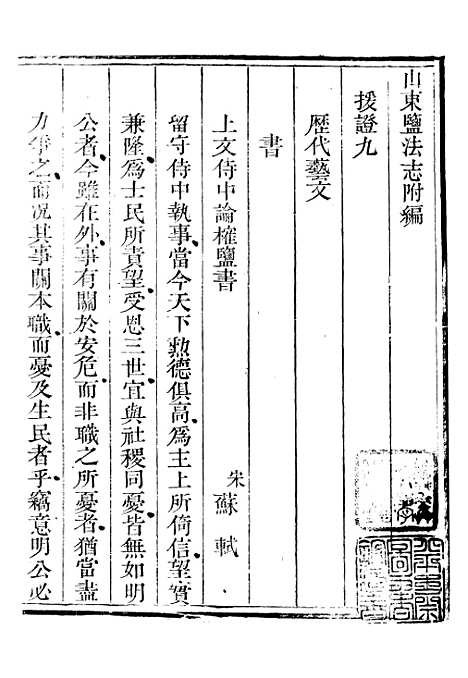 山東鹽法志附編
援證九
歷代藝文
書
上文侍中論榷鹽書
宋蘇軾
留守侍中執事當今天下勲德俱高爲主上所倚信望實
兼隆爲士民所責望受恩三世宜與社稷同憂皆無如明
公者今雖在外事有關於安危而非職之所憂者猶當盡
力爭之而况其事關本職而憂及生民者乎竊意明公必